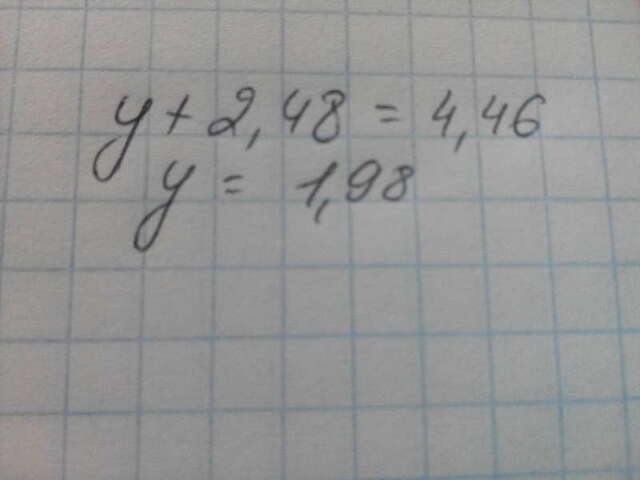 y + 2,48 = 4,46
y = 1,98